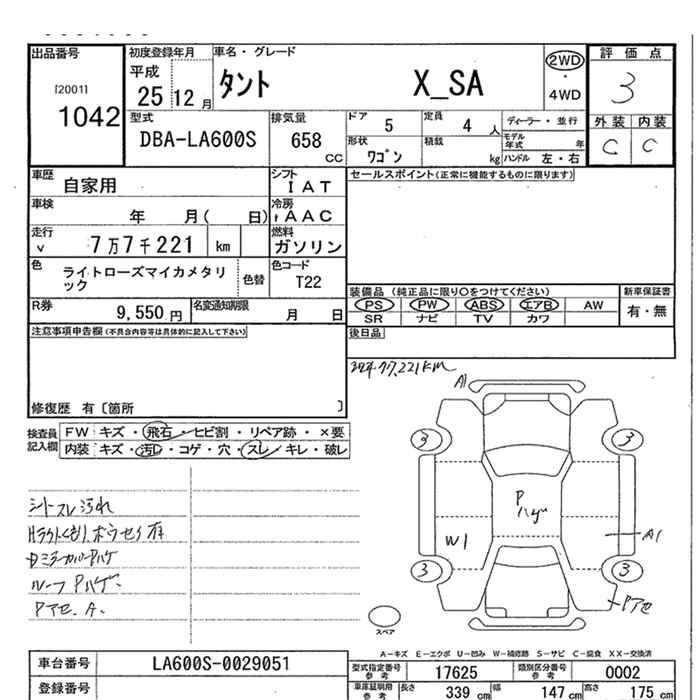 出品番号
[2001]
1042
初度登録年月
平成
25 12 月
車名・グレード
タント X_SA
2WD
・
4WD
評価点
3
外装 内装
C C
型式
DBA-LA600S
排気量
658
CC
ドア
5
定員
4 人
形状
ワゴン
積載
kg
ディーラー・並行
モデル年式 年
ハンドル 左・右
車歴
自家用
シフト
IAT
車検
年 月( 日)
冷房
AAC
走行
7万7千221 km
燃料
ガソリン
色
ライトローズマイカメタリック
色替
色コード
T22
R券
9,550 円
名変通知期限
月 日
セールスポイント(正常に機能するものに限ります)
装備品 (純正品に限り○をつけてください)
PS PW ABS エアB AW
SR ナビ TV カワ
新車保証書
有・無
後日品
注意事項申告欄(不具合内容等は具体的に記入して下さい)
修復歴 有〔箇所 〕
77,221km
検査員記入欄
FW キズ・飛石・ヒビ割・リペア跡・×要
内装 キズ・汚れ・コゲ・穴・スレ・キレ・破レ
シートスレ汚れ
ルーフPハゲ
Pアセ.A.
A1
3
3
P
ハゲ
W1
A1
3
3
Pアセ
スペア
A-キズ E-エクボ U-凹み W-補修跡 S-サビ C-腐食 XX-交換済
車台番号
LA600S-0029051
登録番号
型式指定番号 参考
17625
類別区分番号 参考
0002
車庫証明用 参考
長さ 339 cm
幅 147 cm
高さ 175 cm